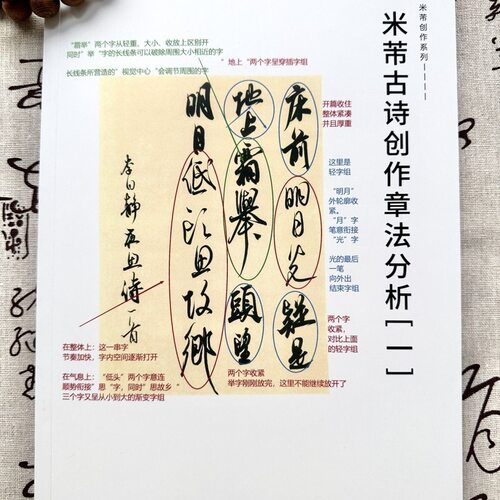 米芾创作系列————
米芾古诗创作章法分析[一]
“霜举”两个字从轻重、大小、收放上区别开
同时”举“字的长线条可以破除周围大小相近的字
长线条所营造的”视觉中心“会调节周围的字
”地上“两个字呈穿插字组
床前明月光疑是
地上霜舉頭望
明月低头思故鄉
李白静夜思诗一首
开篇收住
整体紧凑
并且厚重
这里是
轻字组
“明月”
外轮廓收
紧。
“月”字
笔意衔接
“光”字
光的最后
一笔
向外出
结束字组
两个字
收紧，
对比上面
的轻字组
两个字收紧
举字刚刚放完，这里不能继续放开了
在整体上：这一串字
节奏加快，字内空间逐渐打开
在气息上：“低头”两个字意连
顺势衔接”思“字，同时”思故乡“
三个字又呈从小到大的渐变字组